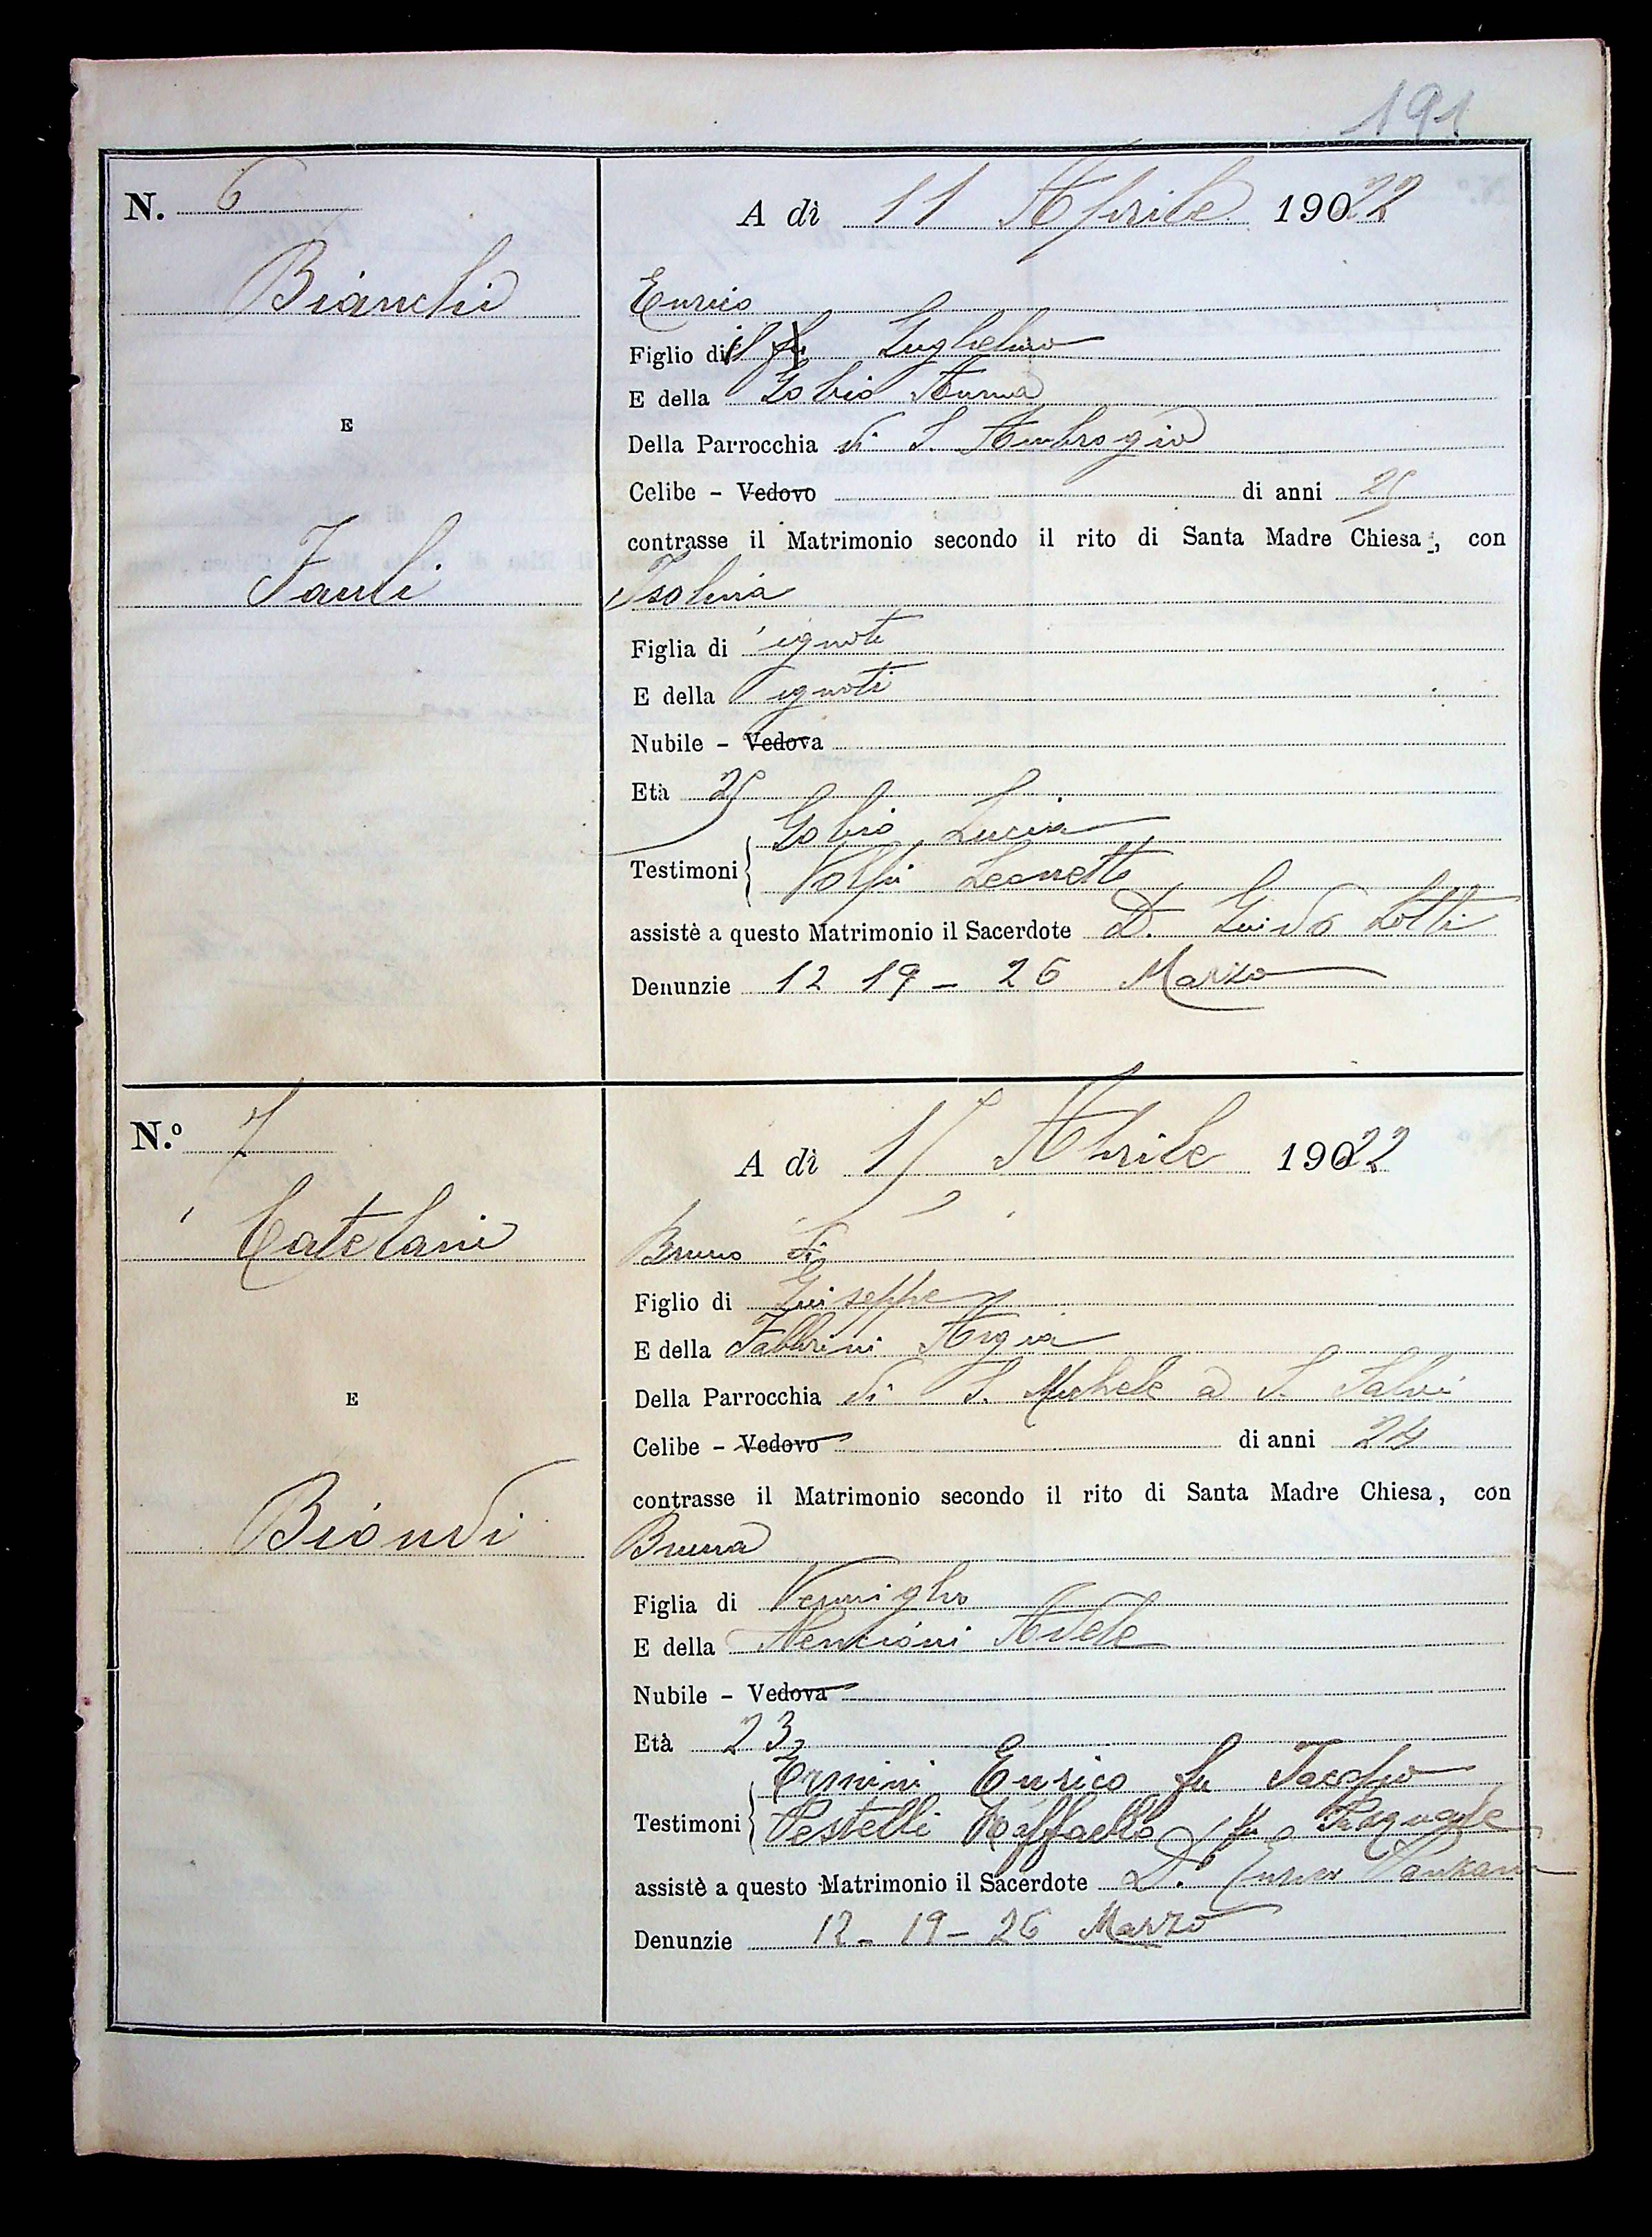 191
N. 6
A dì 11 Aprile 19022
Bianchi
Enrico
Figlio di fu Guglielmo
E della Gobio Anna
E
Della Parrocchia di S. Ambrogio
Celibe - Vedovo di anni 25
contrasse il Matrimonio secondo il rito di Santa Madre Chiesa, con
Fauli
Isolina
Figlia di ignoti
E della ignoti
Nubile - Vedova
Età 25
Gobio Lucia
Testimoni
Volfi Leonetto
assistè a questo Matrimonio il Sacerdote D. Guido Lotti
Denunzie 12 19 - 26 Marzo
N.º 7
A dì 15 Aprile 19022
Catelani
Bruno di
Figlio di Giuseppe
E della Fabbrini Argia
Della Parrocchia di S. Michele a S. Salvi
E
Celibe - Vedovo di anni 24
contrasse il Matrimonio secondo il rito di Santa Madre Chiesa, con
Biondi
Bruna
Figlia di Vermiglio
E della Nencioni Adele
Nubile - Vedova
Età 23
Ermini Enrico fu Jacopo
Testimoni
Pestelli Raffaello fu Pasquale
assistè a questo Matrimonio il Sacerdote D.
Denunzie 12 - 19 - 26 Marzo